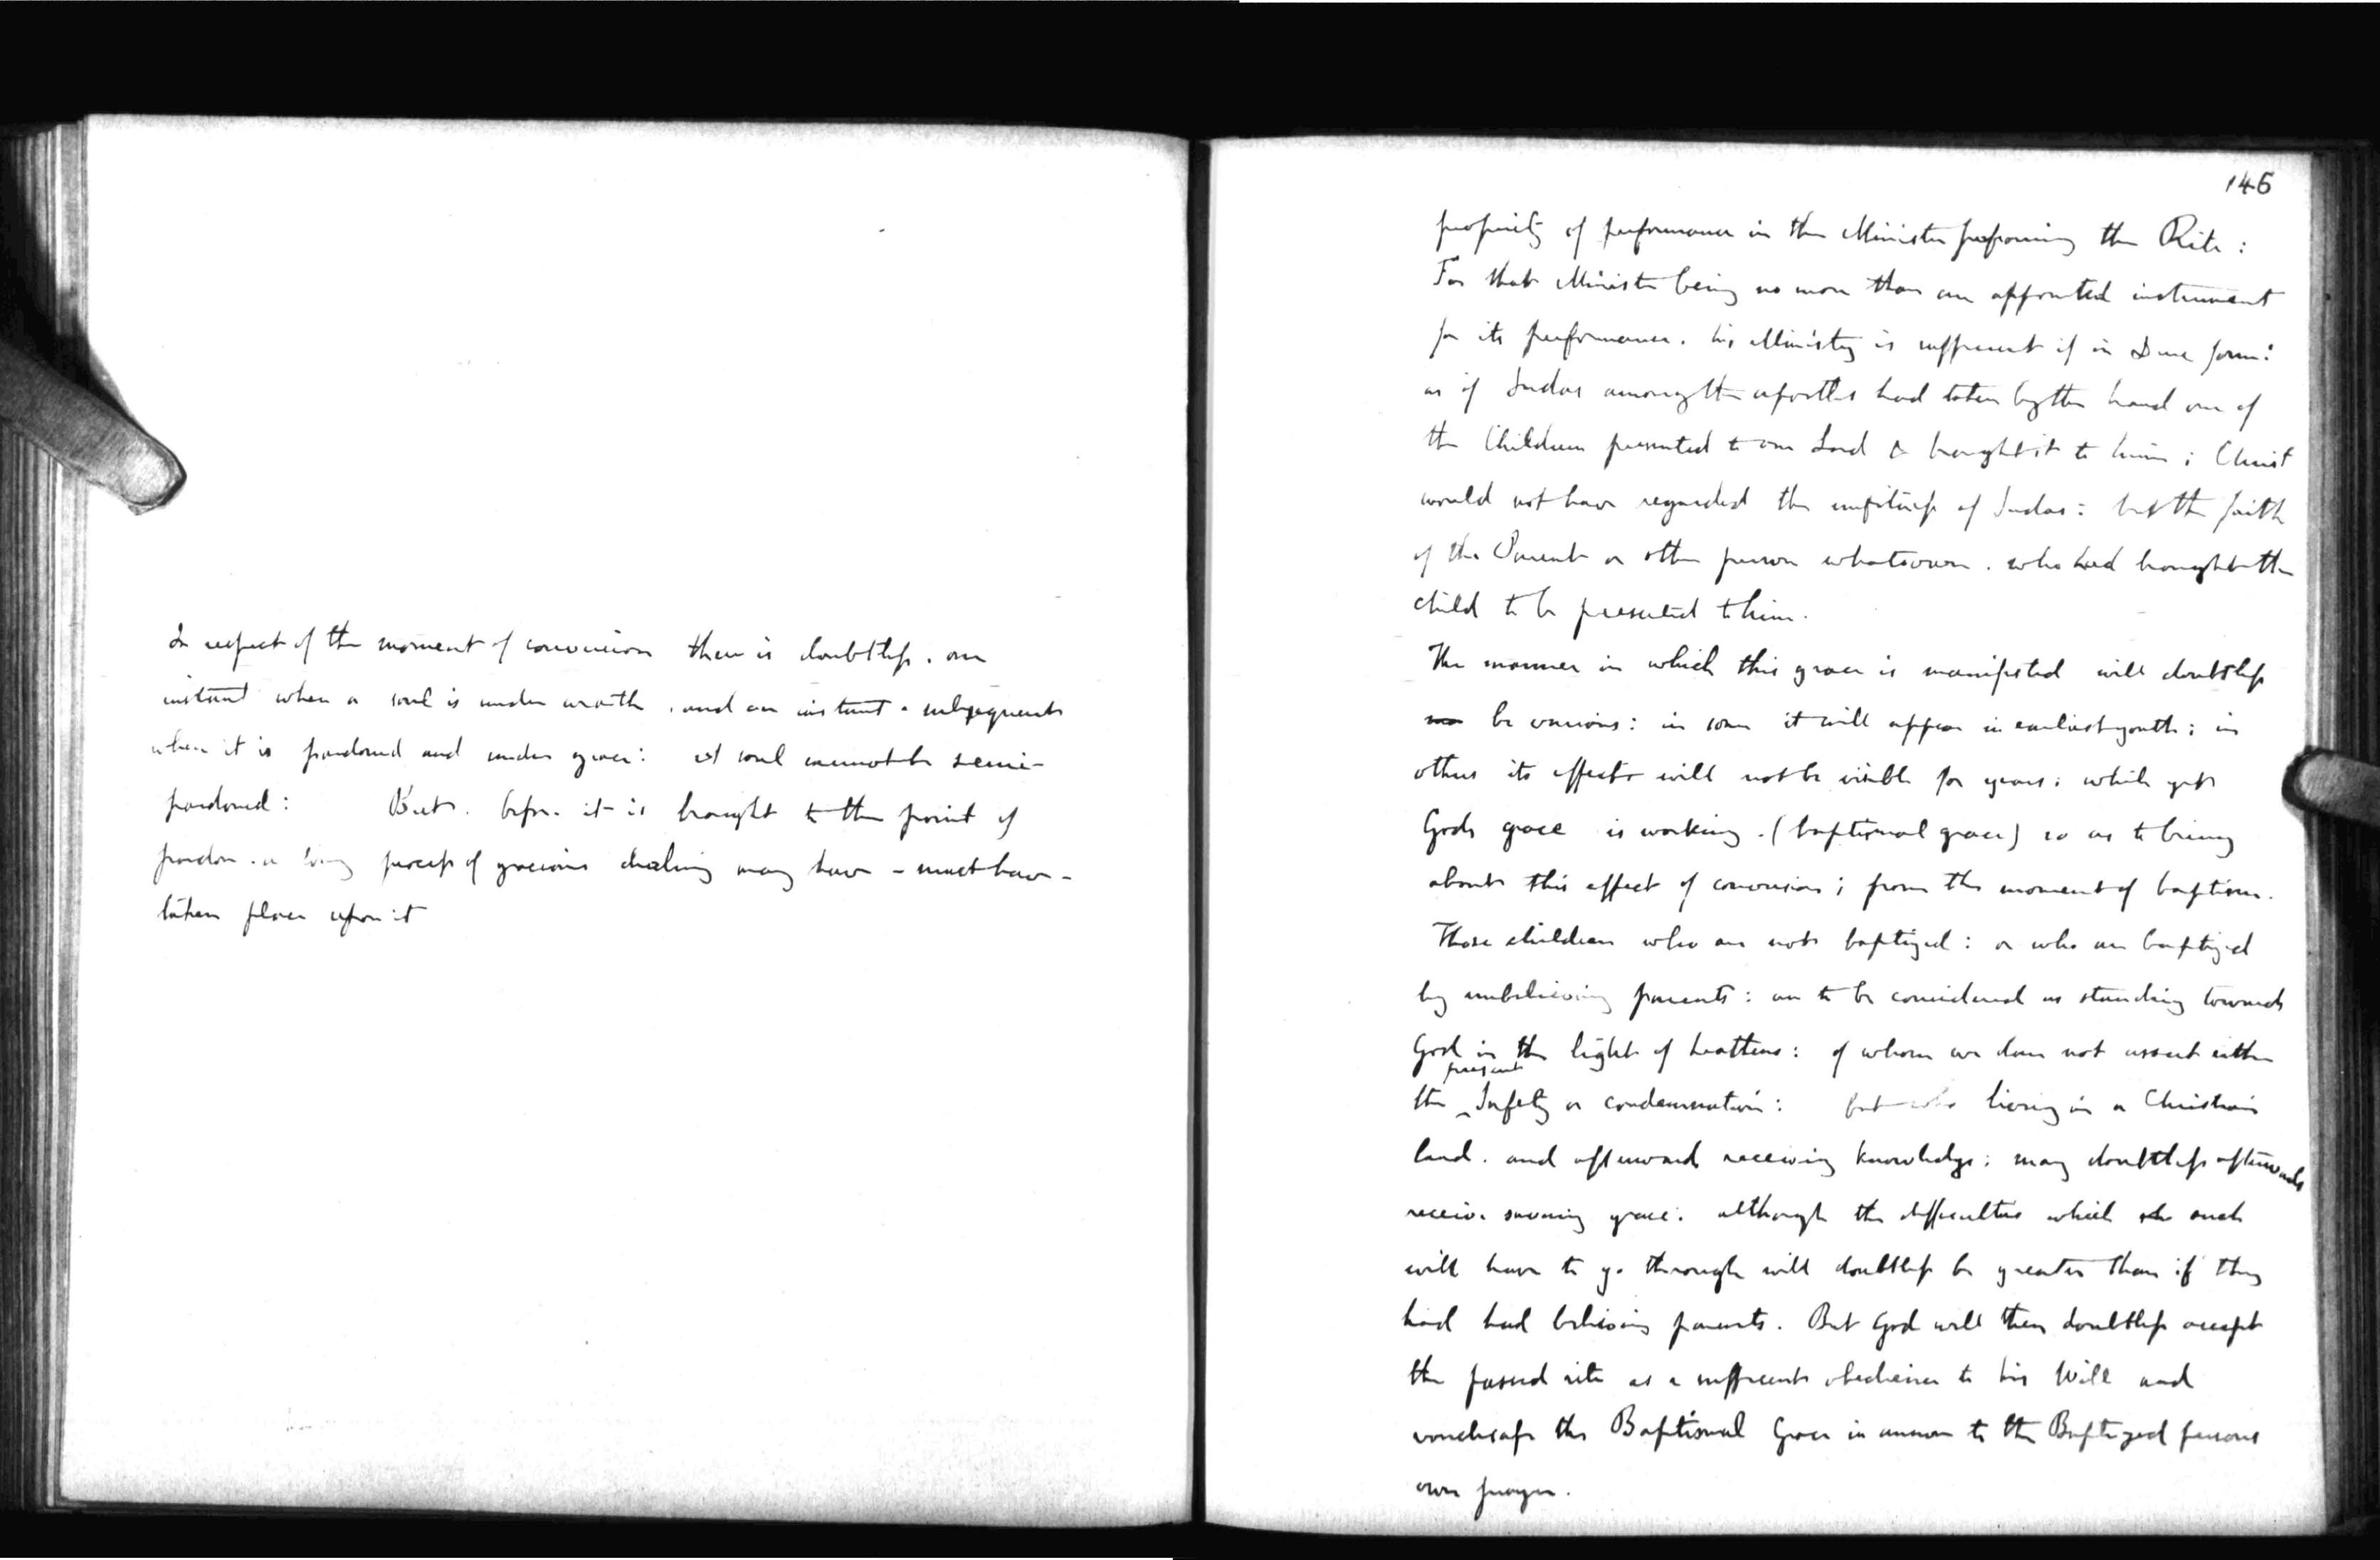 In respect of the moment of conversion there is doubtless, an
instant when a soul is under wrath, and an instant - subsequent
when it is pardoned and under grace: A soul cannot be semi-
pardoned: But. before it is brought to the point of
pardon. a long process of gracious dealing may have - must have -
taken place upon it
146
propriety of performance in the Minister performing the Rite:
For that Minister being no more than an appointed instrument
for its performance. his Ministry is sufficient if in Due form:
as if Judas among the apostles had taken by the hand one of
the Children presented to our Lord & brought it to him; Christ
would not have regarded the unfitness of Judas: but the faith
of the Parent or other person whatsoever. who had brought the
child to be presented to him.
The manner in which this grace is manifested will doubtless
be various: in some it will appear in earliest youth; in
others its effects will not be visible for years: while yet
Gods grace is working. (baptismal grace) so as to bring
about this effect of conversion; from the moment of baptism.
Those children who are not baptized: or who are baptized
by unbelieving parents: are to be considered as standing towards
God in the light of heathens: of whom we dare not assert either
the present Safety or condemnation: but who living in a Christian
land. and afterwards receiving knowledge; may doubtless afterwards
receive saving grace: although the difficulties which such
will have to go through will doubtless be greater than if they
had had believing parents. But God will then doubtless accept
the passed rite as a sufficient obedience to his Will and
vouchsafe the Baptismal Grace in answer to the Baptized persons
own prayer.